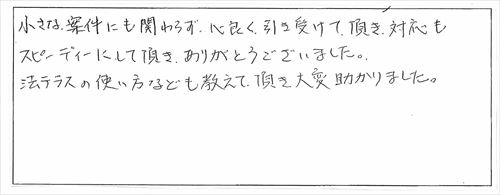 小さな案件にも関わらず、心良く引き受けて頂き、対応も
スピーディーにして頂き、ありがとうございました。
法テラスの使い方なども教えて頂き大変助かりました。